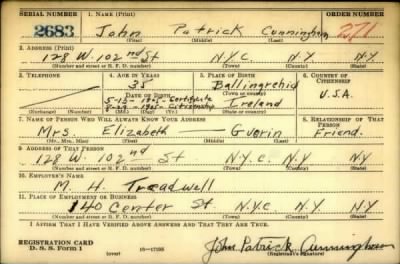 SERIAL NUMBER 1. NAME (Print) ORDER NUMBER
2683 John Patrick Cunningham 271
(First) (Middle) (Last)
2. ADDRESS (Print)
128 W. 102nd St N.Y.C. N.Y N.Y
(Number and street or R. F. D. number) (Town) (County) (State)
3. TELEPHONE 4. AGE IN YEARS 5. PLACE OF BIRTH 6. COUNTRY OF CITIZENSHIP
35 Ballingrehid
DATE OF BIRTH (Town or county)
5-15-1905-Certificate Ireland U.S.A.
Citizenship
(Exchange) (Number) (Mo.) (Day) (Yr.) (State or country)
7. NAME OF PERSON WHO WILL ALWAYS KNOW YOUR ADDRESS 8. RELATIONSHIP OF THAT PERSON
Mrs. Elizabeth — Guerin Friend.
(Mr., Mrs., Miss) (First) (Middle) (Last)
9. ADDRESS OF THAT PERSON
128 W. 102nd St N.Y.C. N.Y N.Y
(Number and street or R. F. D. number) (Town) (County) (State)
10. EMPLOYER'S NAME
M. H. Treadwell
11. PLACE OF EMPLOYMENT OR BUSINESS
140 Center St N.Y.C. N.Y N.Y
(Number and street or R. F. D. number) (Town) (County) (State)
I AFFIRM THAT I HAVE VERIFIED ABOVE ANSWERS AND THAT THEY ARE TRUE.
REGISTRATION CARD
D. S. S. FORM 1 (over) 16-17105 John Patrick Cunningham
(Registrant's signature)